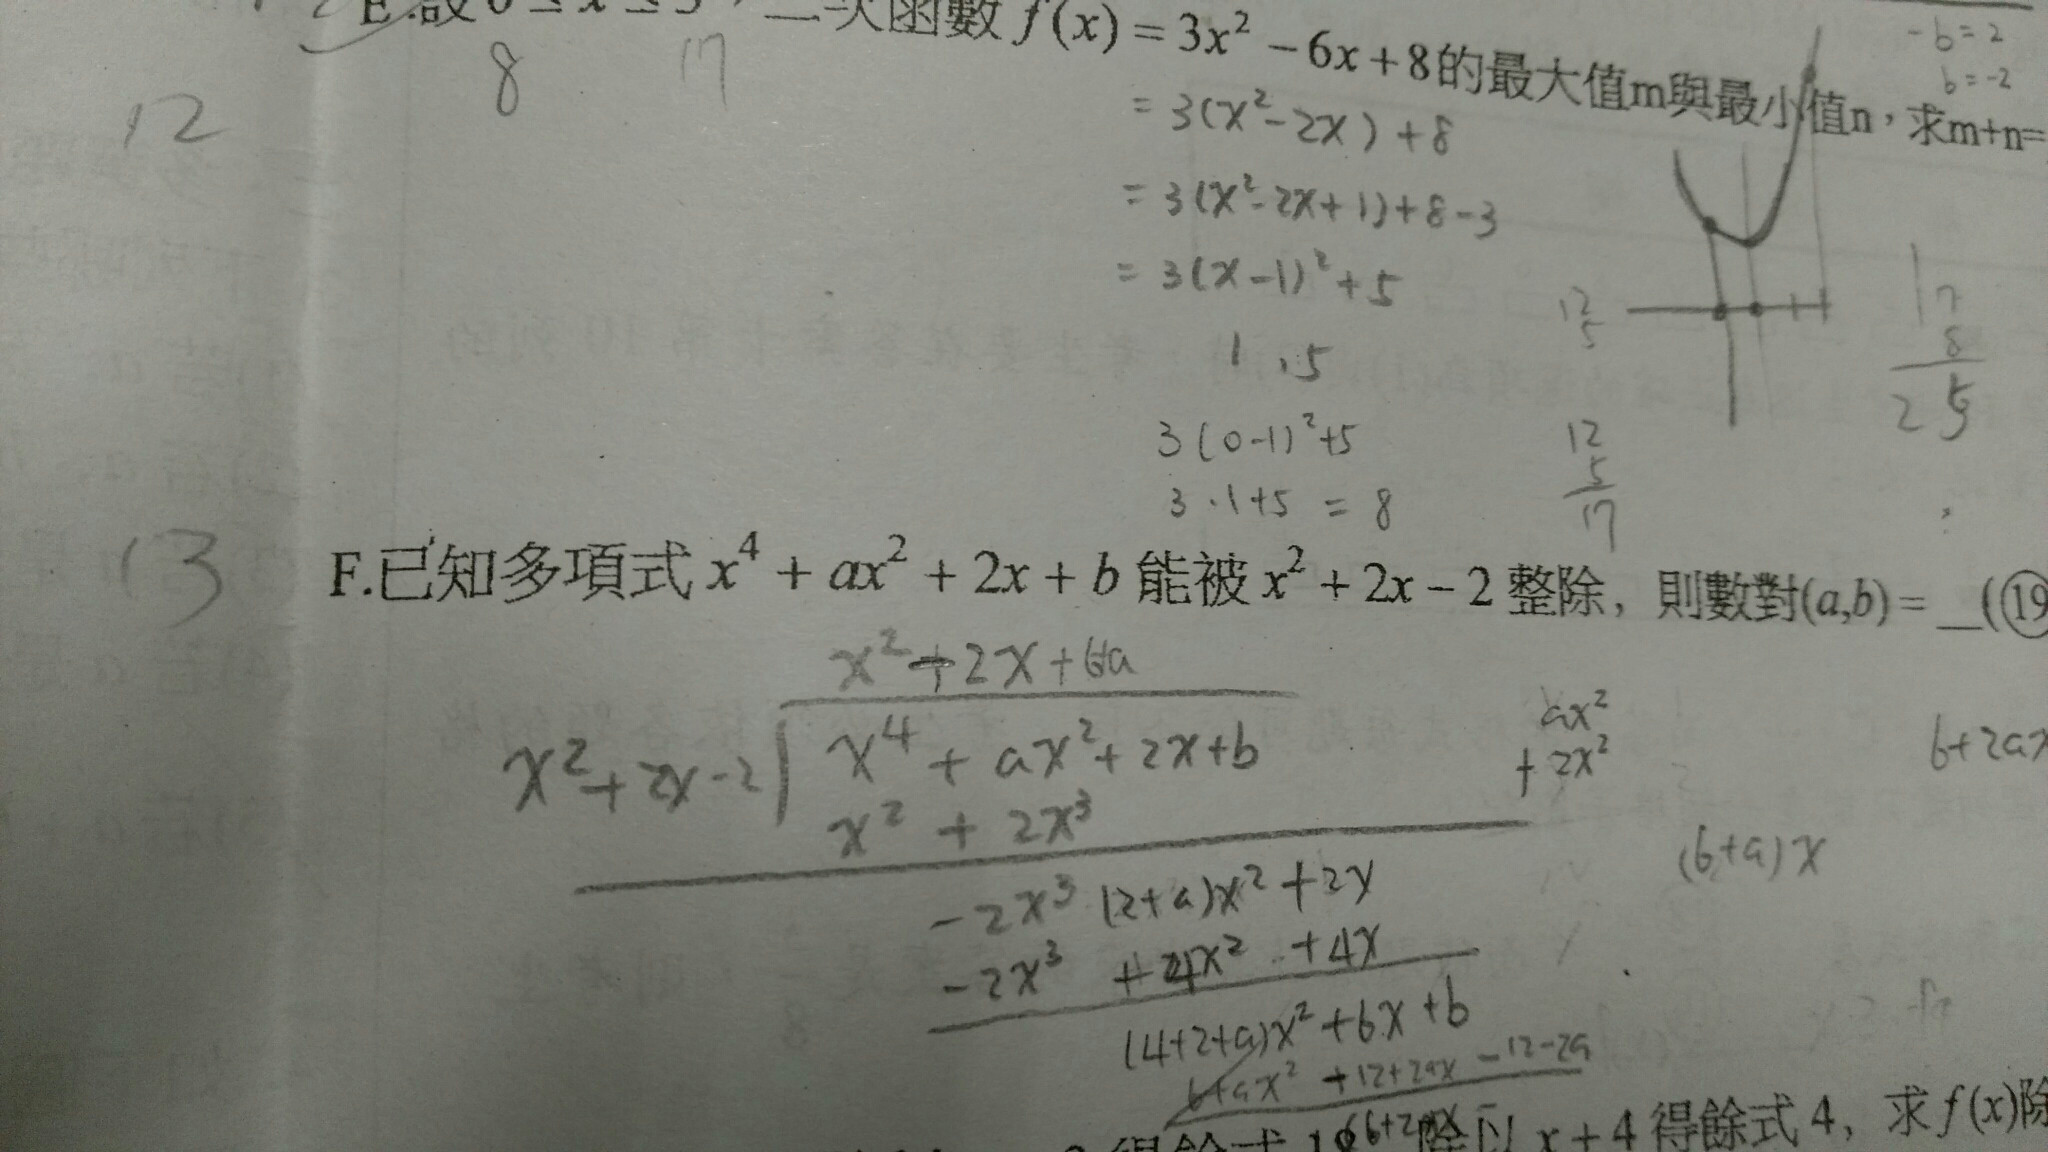 E.設 0 ≤ x ≤ 3，二次函數 f(x) = 3x² − 6x + 8 的最大值m與最小值n，求m+n=
-b = 2
b = -2
8 17
12
= 3(x²-2x)+8
= 3(x²-2x+1)+8-3
= 3(x-1)²+5
1,5
3(0-1)²+5
3·1+5 = 8
12
5
12
5
17
17
8
25
13
F.已知多項式 x⁴ + ax² + 2x + b 能被 x² + 2x − 2 整除，則數對(a,b) = _(⑲
x²+2x+6+a
x²+2x-2 x⁴ + ax² + 2x + b
x² + 2x³
-2x³ (2+a)x² + 2x
-2x³ + 4x² + 4x
(4+2+a)x² + 6x + b
6+ax² + 12+2ax - 12-2a
ax²
+ 2x²
6+2ax
(6+a)x
除以 x + 4 得餘式 4，求 f(x)除